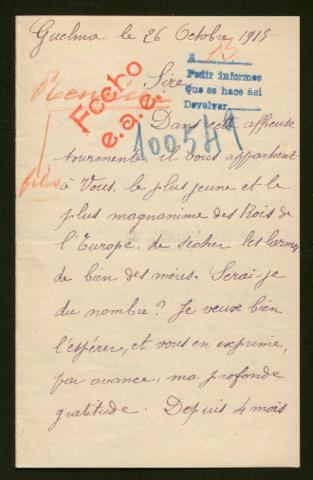 Guelma le 26 Octobre 1915
A 13
Pedir informes
Que se hace ási
Devolver
Sire,
Fecho
e.a.e.
fils
100511
Dans cette affreuse
tourmente il vous appartient
à Vous, le plus jeune et le
plus magnanime des Rois de
l'Europe, de sécher les larmes
de bien des mères. Serai-je
du nombre? Je veux bien
l'espérer, et vous en exprime,
par avance, ma profonde
gratitude. Depuis 4 mois